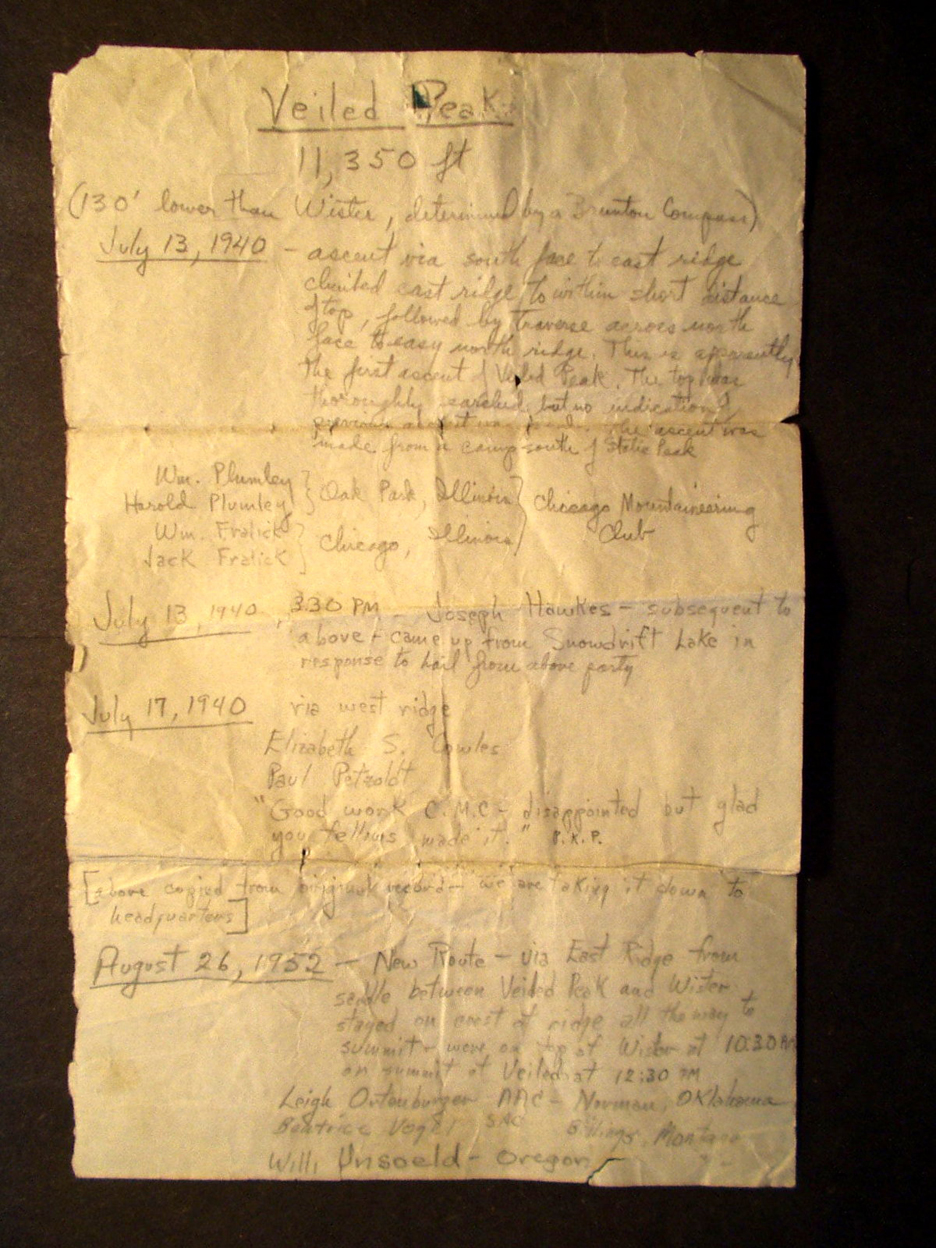 Veiled Peak
11,350 ft
(130' lower than Wister, determined by a Brunton Compass)
July 13, 1940 – ascent via south face to east ridge
climbed east ridge to within short distance
of top, followed by traverse across north
face to easy north ridge. This is apparently
the first ascent of Veiled Peak. The top was
thoroughly searched, but no indication of
previous ascent was found. The ascent was
made from a camp south of Static Peak
Wm. Plumley
Harold Plumley } Oak Park, Illinois } Chicago Mountaineering
Wm. Fralick Club
Jack Fralick } Chicago, Illinois
July 13, 1940, 3:30 PM – Joseph Hawkes – subsequent to
above – came up from Snowdrift Lake in
response to hail from above party
July 17, 1940 via west ridge
Elizabeth S. Cowles
Paul Petzoldt
"Good work C.M.C. – disappointed but glad
you fellows made it." P.K.P.
[above copied from original record – we are taking it down to
headquarters]
August 26, 1952 – New Route – via East Ridge from
saddle between Veiled Peak and Wister
stayed on crest of ridge all the way to
summit – were on top of Wister at 10:30 AM
on summit of Veiled at 12:30 PM
Leigh Ortenburger AAC – Norman, Oklahoma
Beatrice Vogel SAC Billings, Montana
Willi Unsoeld – Oregon